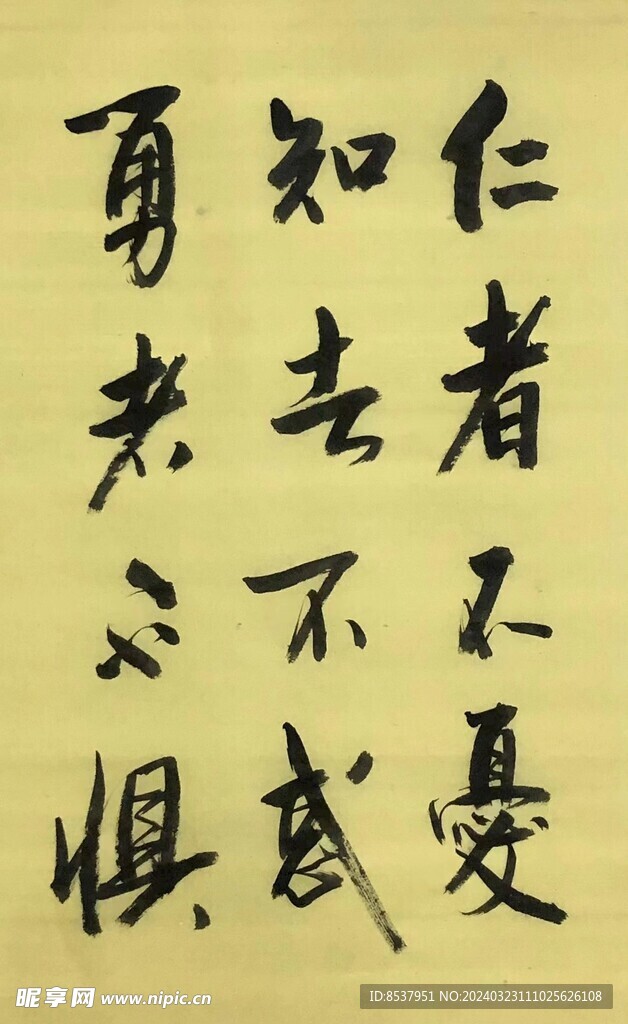 仁者不憂
知者不惑
勇者不惧
昵享网 www.nipic.cn
ID:8537951 NO:20240323111025626108